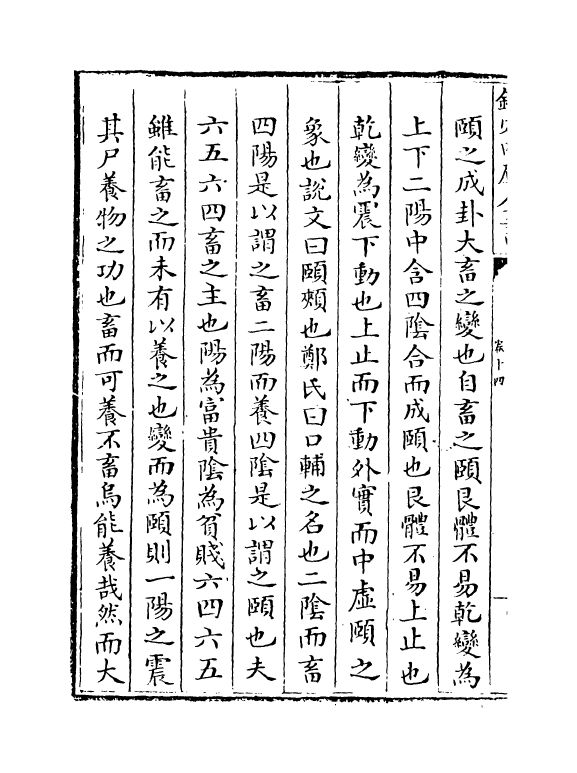 卷十四
頤之成卦大畜之變也自畜之頤艮體不易乾變為
上下二陽中含四陰合而成頤也艮體不易上止也
乾變為震下動也上止而下動外實而中虛頤之
象也說文曰頤頰也鄭氏曰口輔之名也二陰而畜
四陽是以謂之畜二陽而養四陰是以謂之頤也夫
六五六四畜之主也陽為富貴陰為貧賤六四六五
雖能畜之而未有以養之也變而為頤則一陽之震
其尸養物之功也畜而可養不畜烏能養哉然而大